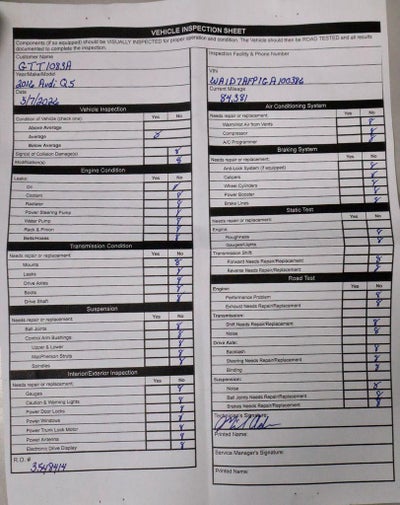 VEHICLE INSPECTION SHEET
Components (if so equipped) should be VISUALLY INSPECTED for proper operation and condition. The Vehicle should then be ROAD TESTED and all results documented to complete the inspection.
Customer Name
GTT1083A
Year/Make/Model
2016 Audi Q5
Date
3/7/2026
Vehicle Inspection
Condition of Vehicle (check one) Yes No
Above Average
Average
Below Average
Sign(s) of Collision Damage(s)
Modification(s)
Engine Condition
Leaks: Yes No
Oil
Coolant
Radiator
Power Steering Pump
Water Pump
Rack & Pinion
Belts/Hoses
Transmission Condition
Needs repair or replacement: Yes No
Mounts
Leaks
Drive Axles
Boots
Drive Shaft
Suspension
Needs repair or replacement: Yes No
Ball Joints
Control Arm Bushings:
Upper & Lower
MacPherson Struts
Spindles
Interior/Exterior Inspection
Needs repair or replacement: Yes No
Gauges
Caution & Warning Lights
Power Door Locks
Power Windows
Power Trunk Lock Motor
Power Antenna
Electronic Drive Display
R.O. #
3548414
Inspection Facility & Phone Number
VIN
WA1D7AFP1GA100386
Current Mileage:
84,381
Air Conditioning System
Needs repair or replacement: Yes No
Warm/Hot Air from Vents
Compressor
A/C Programmer
Braking System
Needs repair or replacement: Yes No
Anti-Lock System (if equipped)
Calipers
Wheel Cylinders
Power Booster
Brake Lines
Static Test
Needs repair or replacement: Yes No
Engine
Roughness
Gauges/Lights
Transmission Shift:
Forward Needs Repair/Replacement
Reverse Needs Repair/Replacement
Road Test
Engine: Yes No
Performance Problem
Exhaust Needs Repair/Replacement
Transmission:
Shift Needs Repair/Replacement
Noise
Drive Axle:
Backlash
Steering Needs Repair/Replacement
Binding
Suspension:
Noise
Ball Joints Needs Repair/Replacement
Brakes Needs Repair/Replacement
Technician's Signature:
Printed Name:
Service Manager's Signature:
Printed Name: